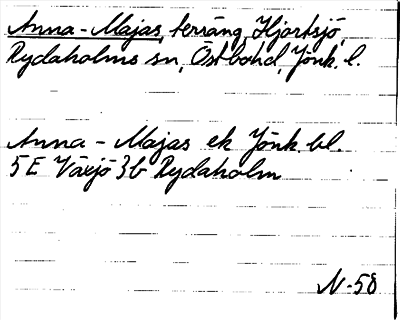 Anna-Majas, terräng, Hjortsjö,
Rydaholms sn, Östbohd, Jönk. l.
Anna-Majas ek Jönk. bl.
5E Växjö 3b Rydaholm
N-58